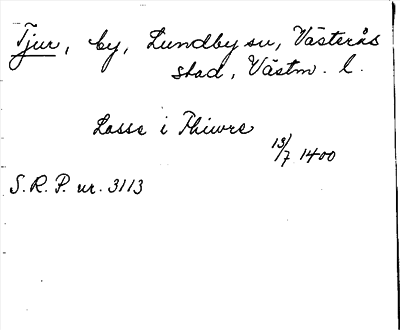 Tjur, by, Lundby sn, Västerås
stad, Västm. l.
Lasse i Thiwre
13/7 1400
S.R.P. nr. 3113